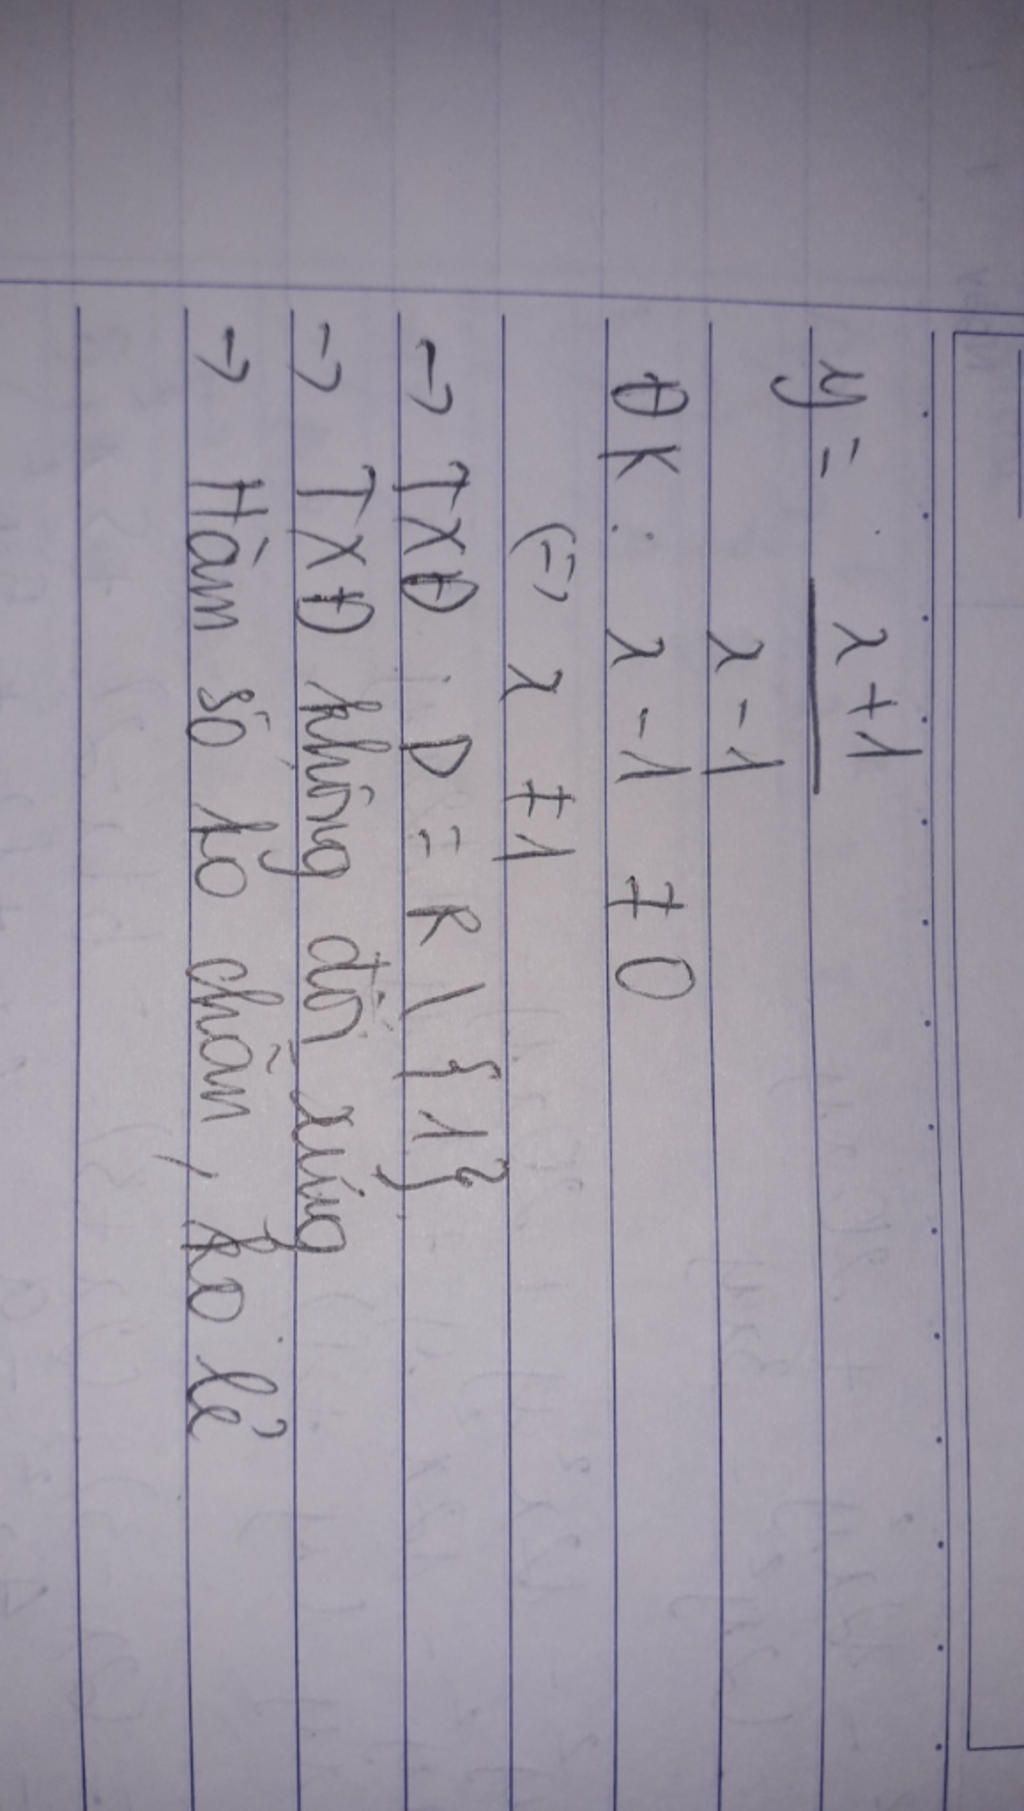 y = x + 1
x - 1
ĐK : x - 1 ≠ 0
(=) x ≠ 1
-> TXĐ : D = R \ { 1 }
-> TXĐ không đối xứng
-> Hàm số ko chẵn, ko lẻ